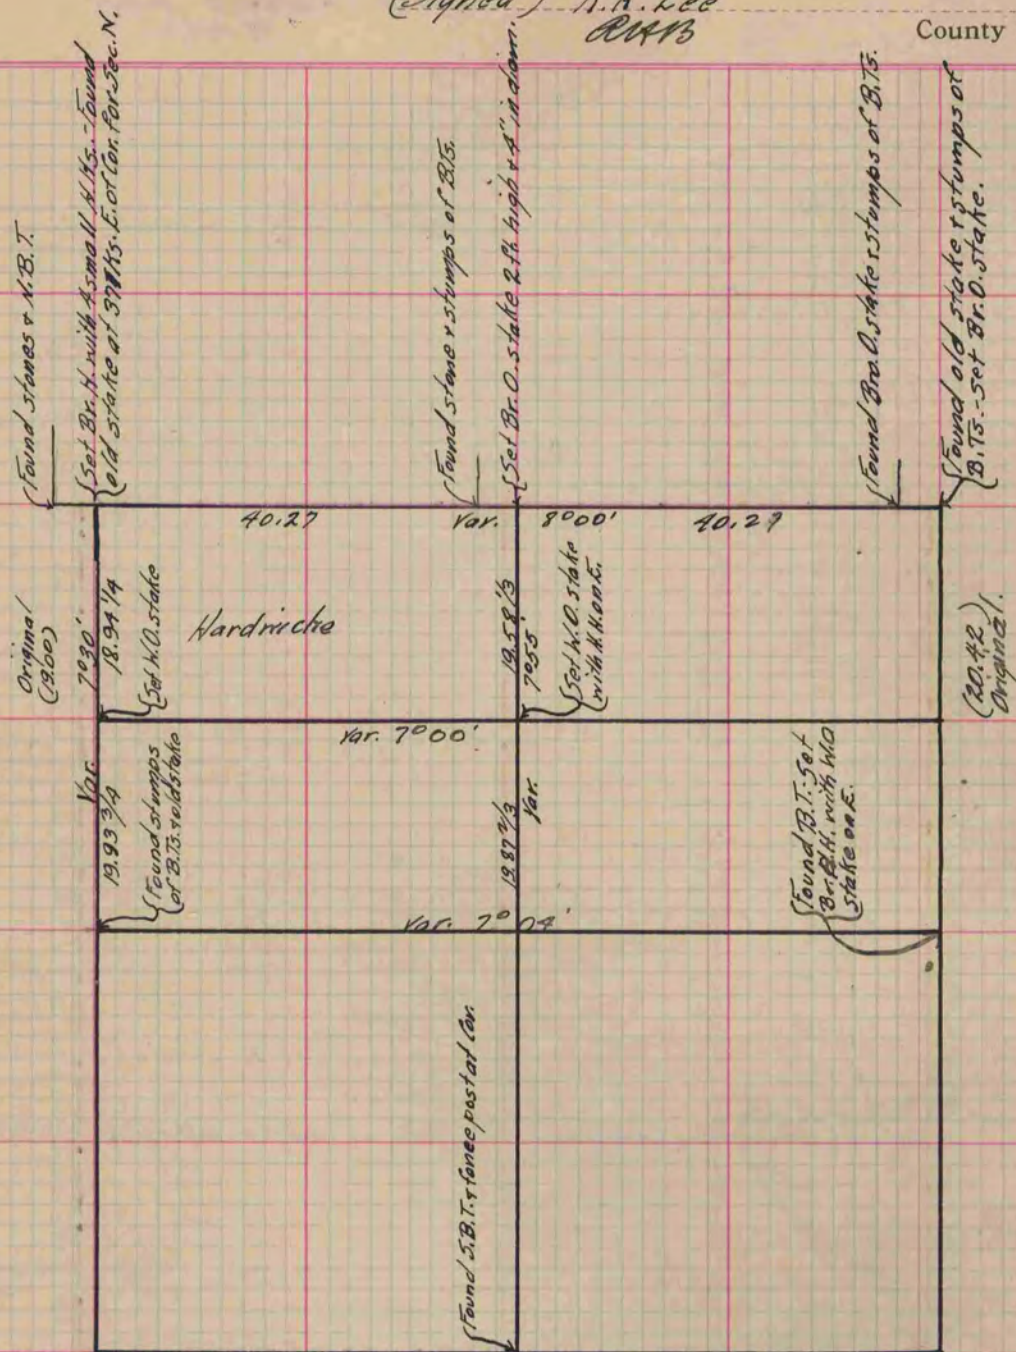 (Signed) A. A. Lee
County
Found stones & N.B.T.
Set Br. H. with 4 small Hks. - Found
old stake at 37 lks. E. of Cor. for Sec. N.
Found stone & stumps of B.Ts.
Set Br. O. stake 2 ft. high & 4" in diam.
Found Bro. O. stake & stumps of B.Ts.
Found old stake & stumps of
B.Ts. - set Br. O. stake.
40.27
Var. 8°00'
40.29
Original
(19.00)
7°30'
18.94 1/4
Set W.O. stake
Hardwicke
19.58 1/3
7°55'
Set W.O. stake
with H.H. on E.
(20.42)
Original.
Var. 7°00'
Var.
19.93 3/4
Found stumps
of B.Ts. & old stake
19.87 2/3
Var.
Found B.T. - Set
Br. H. with W.O
stake on E.
Var. 7°04'
Found S.B.T. & fence post at Cor.